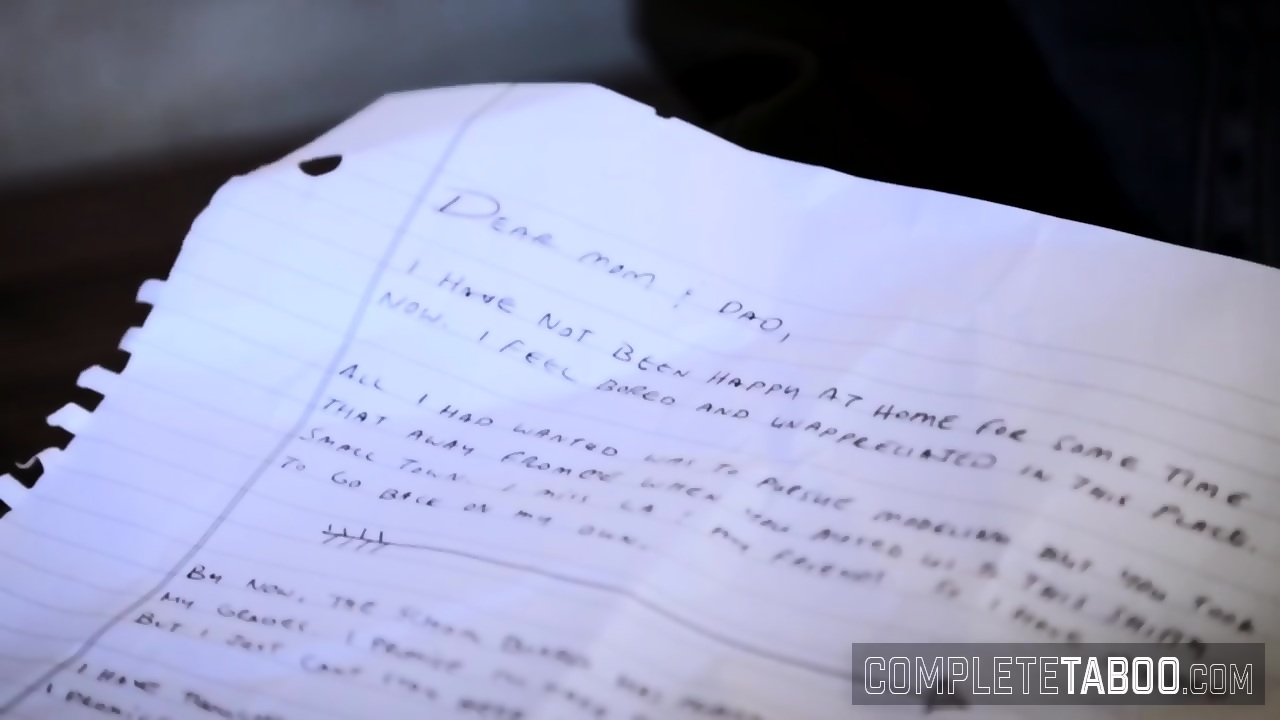 DEAR MOM & DAD,
I HAVE NOT BEEN HAPPY AT HOME FOR SOME TIME
NOW. I FEEL BORED AND UNAPPRECIATED IN THIS PLACE.
ALL I HAD WANTED WAS TO PURSUE MODELING BUT YOU TOOK
THAT AWAY FROM ME WHEN YOU MOVED US TO THIS SHITTY
SMALL TOWN. I MISS LA & MY FRIENDS SO I HAVE
TO GO BACK ON MY OWN.
BY NOW, THE SCHOOL
MY GRADES. I PROMISE
BUT I JUST CANT STAY HERE
I HAVE
I PROMISE
COMPLETETABOO.COM